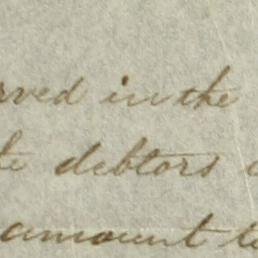 rved in the
te debtors
amount to